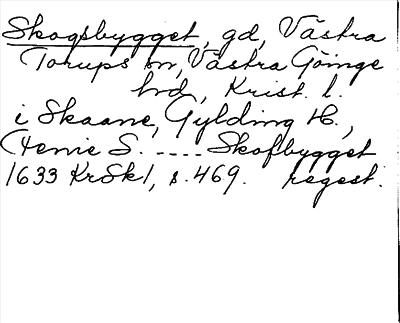 Skogsbygget, gd, Västra
Torups sn, Västra Göinge
hrd, Krist. l.
i Skaane, Gylding H.,
Henie S. .... Skofbygget
1633 KrSk1, s. 469. regest.